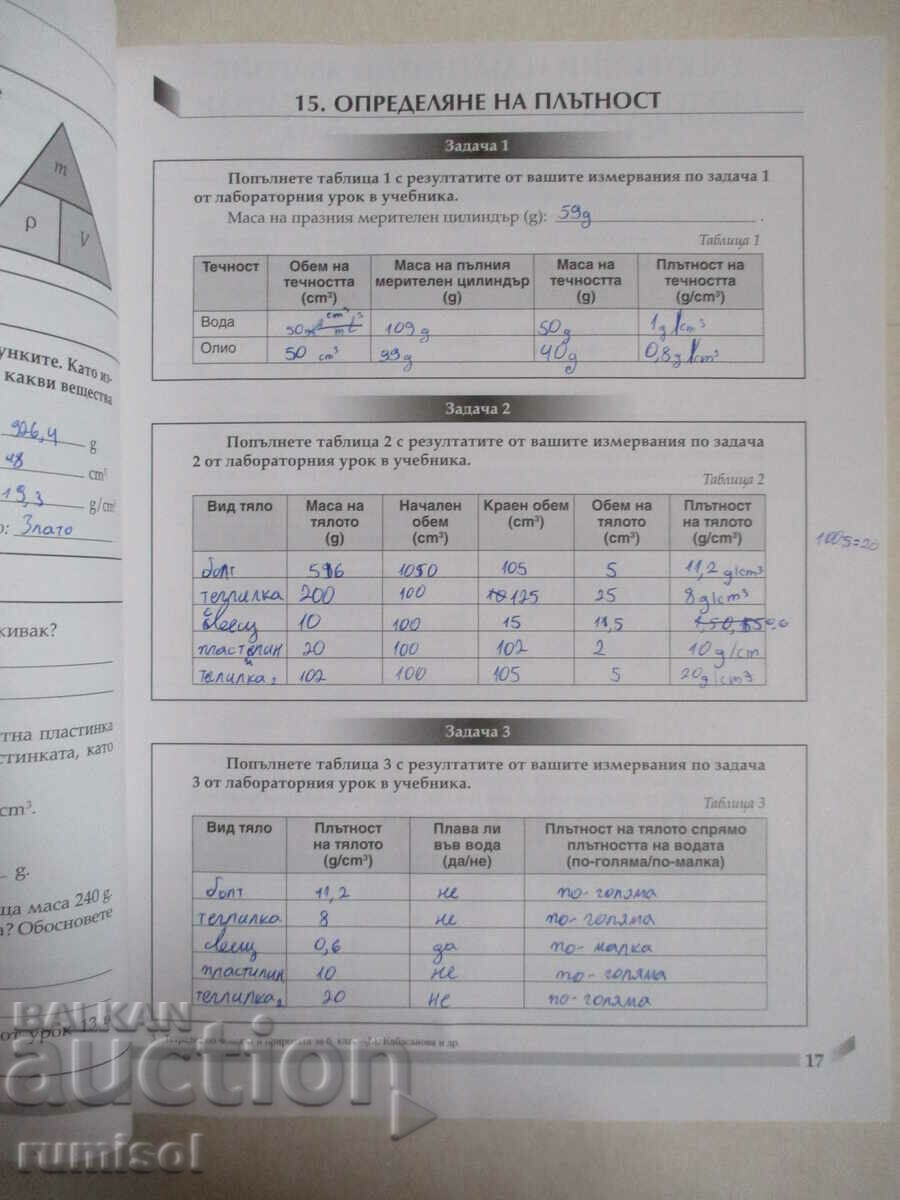 m
ρ
V
унките. Като из-
какви вещества
926,4 g
48 cm³
19,3 g/cm³
о: Злато
живак?
тна пластинка
стинката, като
cm³.
g.
ща маса 240 g.
а? Обосновете
от урок 13.
15. ОПРЕДЕЛЯНЕ НА ПЛЪТНОСТ
Задача 1
Попълнете таблица 1 с резултатите от вашите измервания по задача 1
от лабораторния урок в учебника.
Маса на празния мерителен цилиндър (g): 59g .
Таблица 1
Течност Обем на течността (cm³) Маса на пълния мерителен цилиндър (g) Маса на течността (g) Плътност на течността (g/cm³)
Вода 50 cm³ 109 g 50g 1g/cm³
Олио 50 cm³ 99g 40g 0,8g/cm³
Задача 2
Попълнете таблица 2 с резултатите от вашите измервания по задача
2 от лабораторния урок в учебника.
Таблица 2
Вид тяло Маса на тялото (g) Начален обем (cm³) Краен обем (cm³) Обем на тялото (cm³) Плътност на тялото (g/cm³)
болт 105 5 11,2 g/cm³
теглилка 200 100 125 25 8g/cm³
свещ 10 100 15 0,6
пластилин 20 100 102 2 10g/cm
теглилка₂ 102 100 105 5 20g/cm³
Задача 3
Попълнете таблица 3 с резултатите от вашите измервания по задача
3 от лабораторния урок в учебника.
Таблица 3
Вид тяло Плътност на тялото (g/cm³) Плава ли във вода (да/не) Плътност на тялото спрямо плътността на водата (по-голяма/по-малка)
болт 11,2 не по-голяма
теглилка 8 не по-голяма
свещ 0,6 да по-малка
пластилин 10 не по-голяма
теглилка₂ 20 не по-голяма
17
BALKAN
auction
rumisol